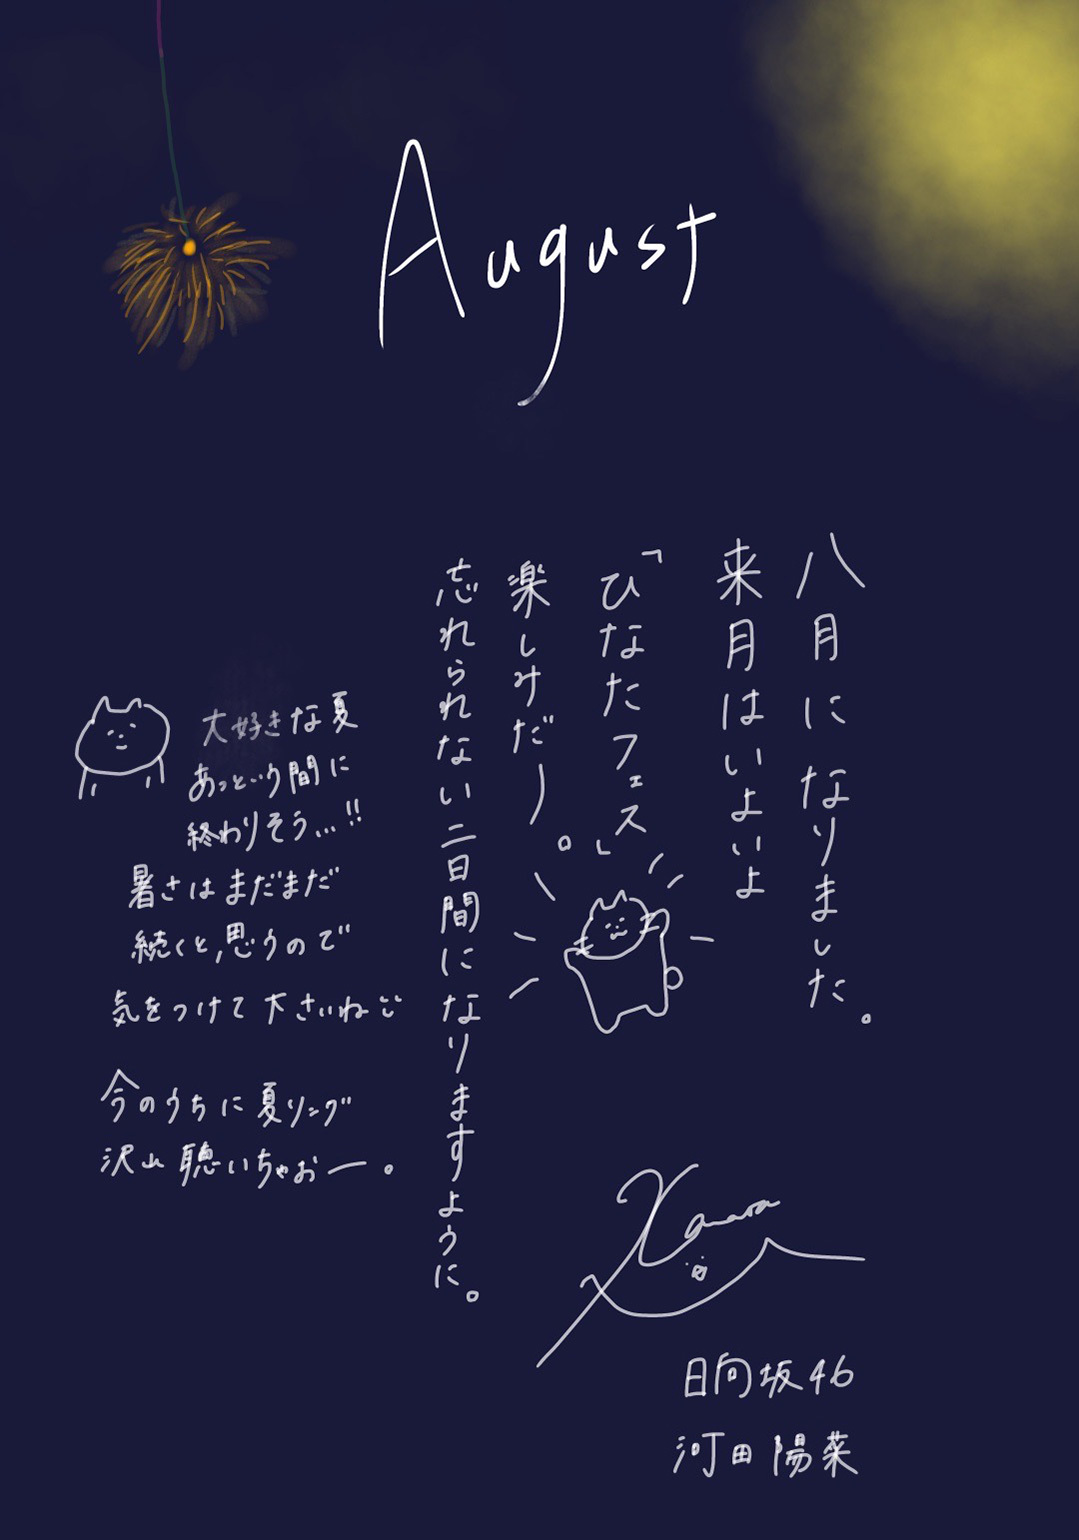 August
八月になりました。
来月はいよいよ
「ひなたフェス」
楽しみだー。
忘れられない二日間になりますように。
大好きな夏
あっという間に
終わりそう…!!
暑さはまだまだ
続くと思うので
気をつけて下さいね
今のうちに夏リング
沢山聴いちゃおー。
日向坂46
河田陽菜